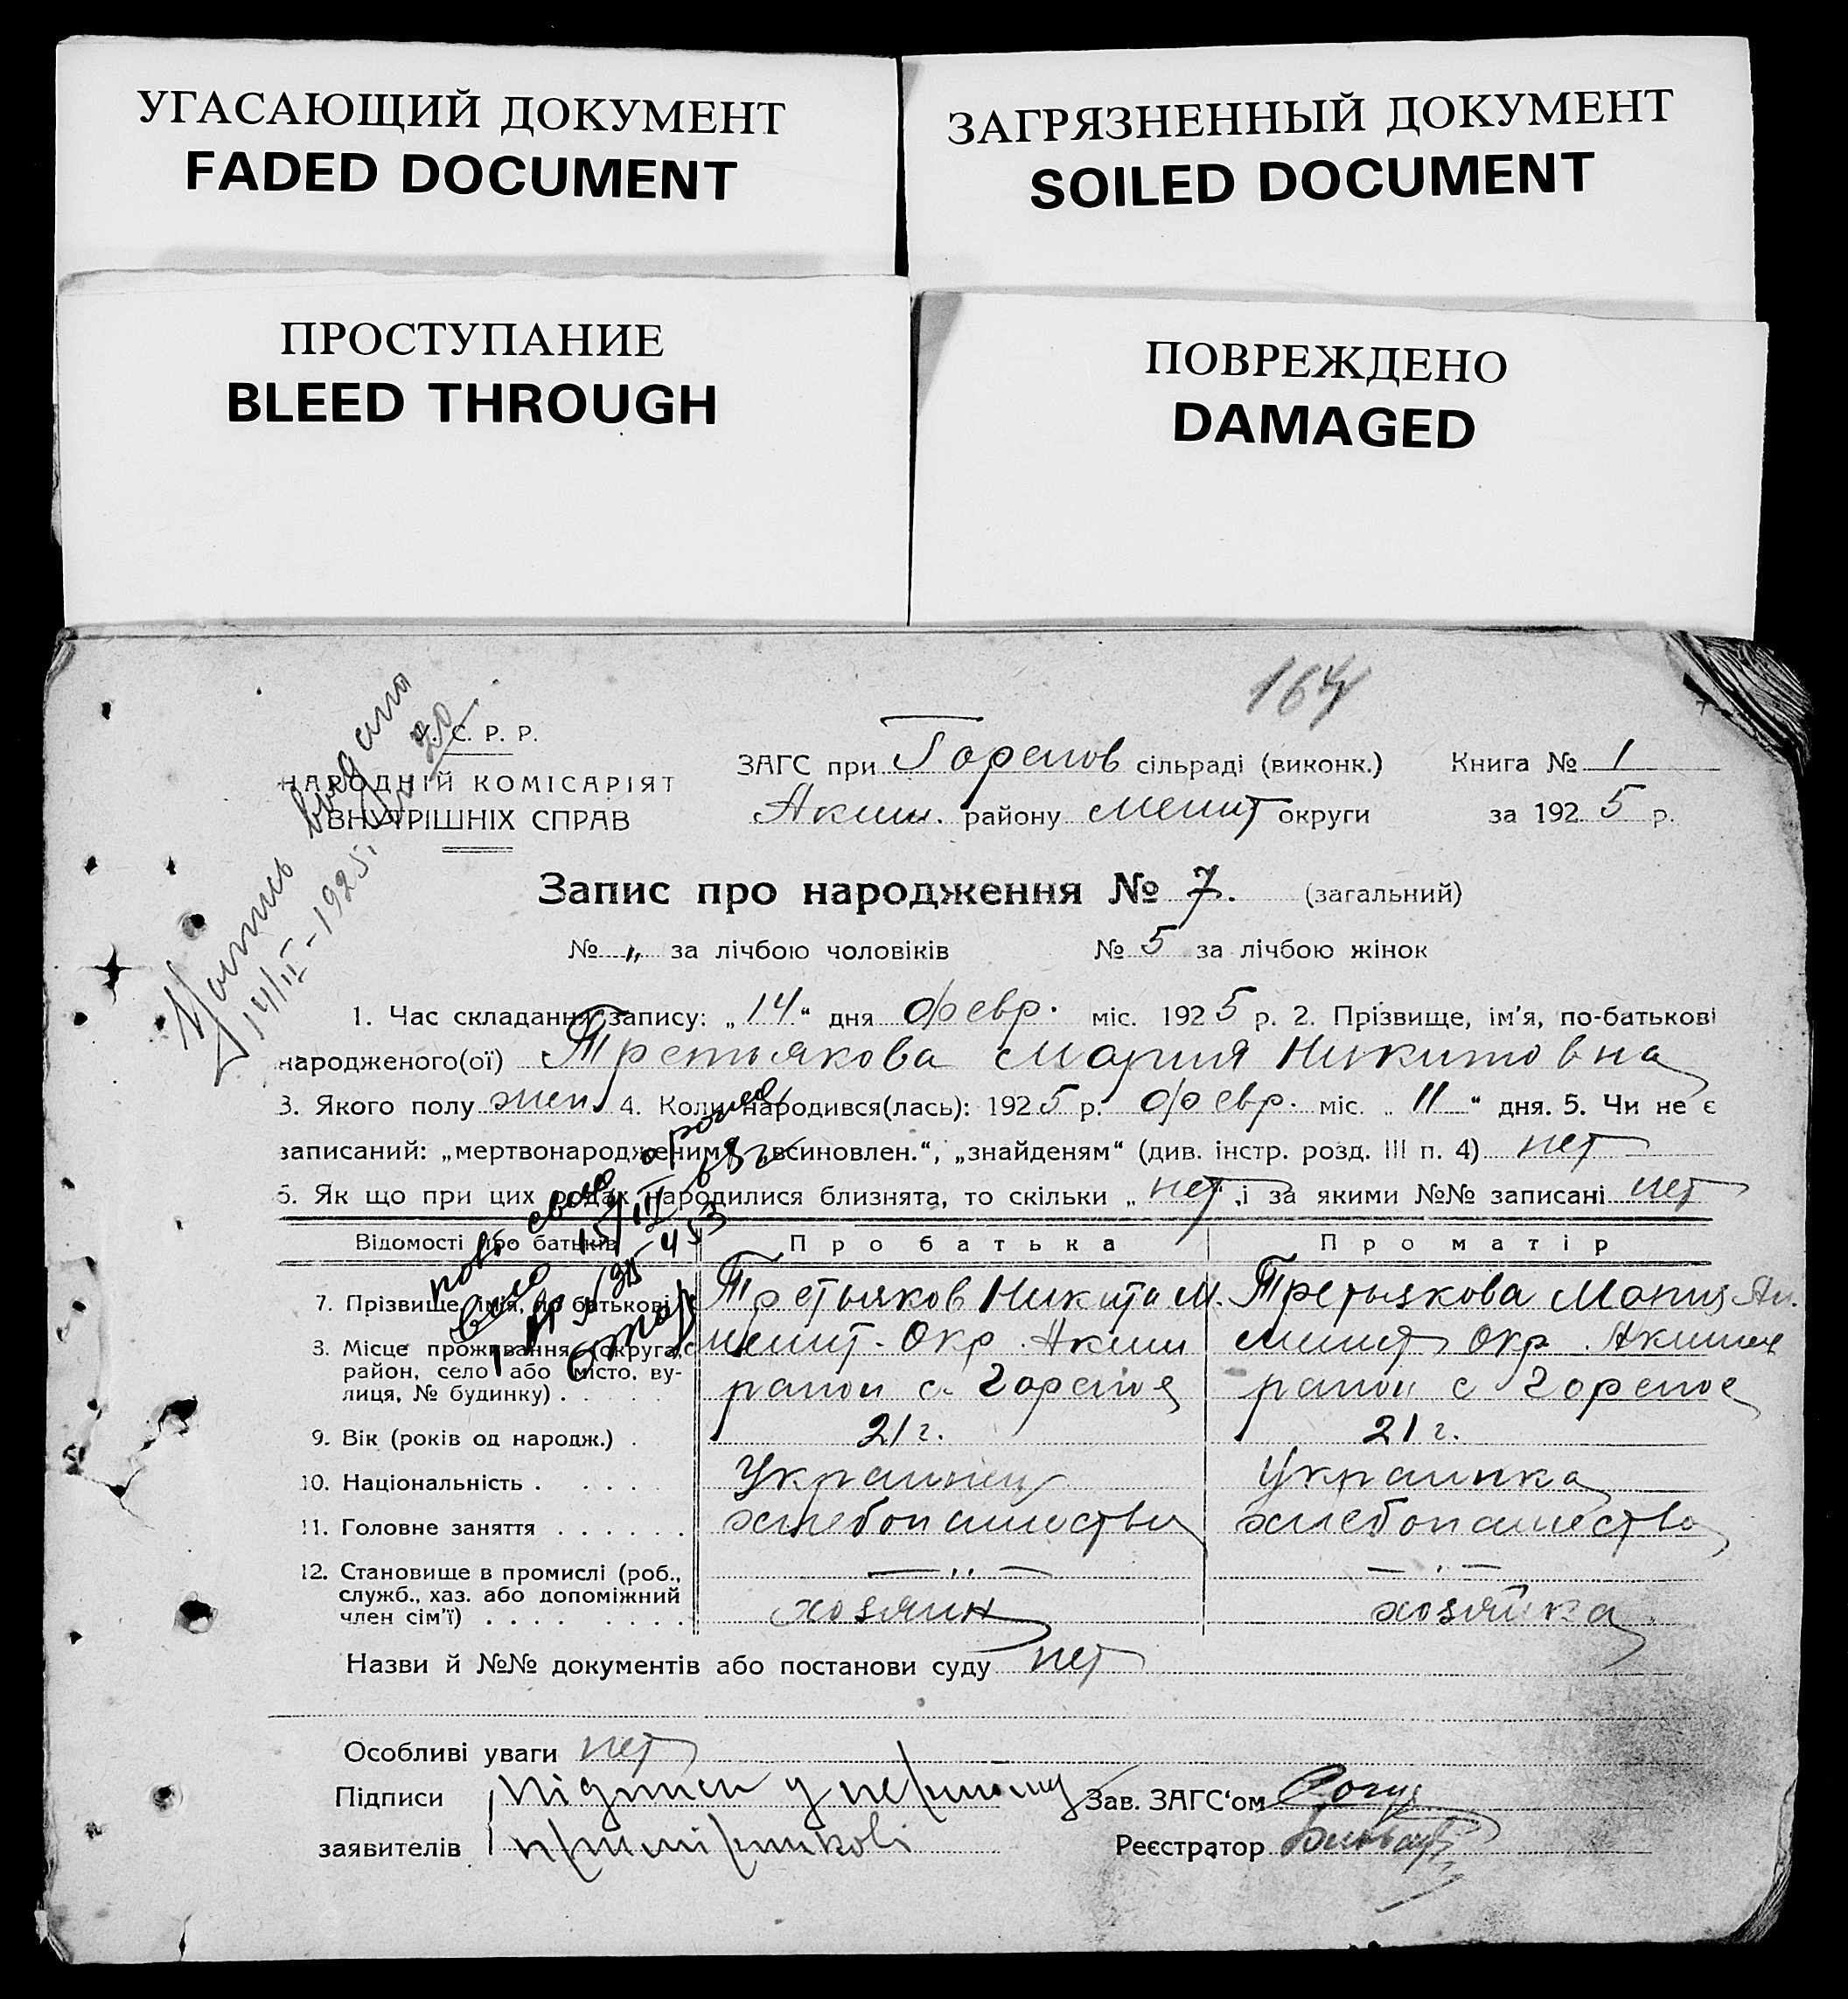 УГАСАЮЩИЙ ДОКУМЕНТ
FADED DOCUMENT
ЗАГРЯЗНЕННЫЙ ДОКУМЕНТ
SOILED DOCUMENT
ПРОСТУПАНИЕ
BLEED THROUGH
ПОВРЕЖДЕНО
DAMAGED
164
У. С. Р. Р.
НАРОДНІЙ КОМІСАРІЯТ
ВНУТРІШНІХ СПРАВ
14/II-1925
ЗАГС при Горелов сільраді (виконк.) Книга № 1
Аким. району Мелит округи за 1925 р.
Запис про народження № 7. (загальний)
№ „ за лічбою чоловіків № 5 за лічбою жінок
1. Час складання запису: „14“ дня февр. міс. 1925 р. 2. Прізвище, ім’я, по-батькові
народженого(ої) Третьякова Мария Никитовна
3. Якого полу жен 4. Коли народився(лась): 1925 р. февр. міс. „11“ дня. 5. Чи не є
записаний: „мертвонародженим“, „всиновлен.“, „знайденям“ (див. інстр. розд. III п. 4) нет
6. Як що при цих родах народилися близнята, то скільки „нет“, і за якими №№ записані нет
Відомості про батьків Про батька Про матір
7. Прізвище, імія, по батькові Третьяков Никита М. Третьякова Мария
8. Місце проживання (округа, Мелит. Окр. Аким Мелит Окр. Аким
район, село або місто, ву-
лиця, № будинку) . район с. Горелое район с Горелое
9. Вік (років од народж.) . 21 г. 21 г.
10. Національність . . . . . Украинец Украинка
11. Головне заняття . . . . . . хлебопашество хлебопашество
12. Становище в промислі (роб.,
служб., хаз. або допоміжний
член сім’ї) . . . . . . . . хозяин хозяйка
Назви й №№ документів або постанови суду нет
Особливі уваги нет
Підписи Підписи у першому Зав. ЗАГС‘ом
заявителів примірникові Реєстратор